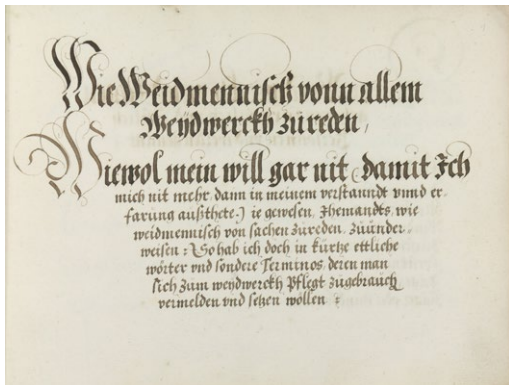 Wie Weidmennisch vonn allem
Weydwerckh zureden,
Wiewol mein will gar nit (damit Ich
mich nit mehr dann in meinem verstanndt vnnd er-
farung außthete:) ie gewesen, Jhemandts, wie
weidmennisch von sachen zureden, zuunder-
weisen: So hab ich doch in kürtze ettliche
wörter vnd sondere Terminos, deren man
sich zum weydwerckh pflegt zugebrauch
vermelden vnd setzen wöllen :